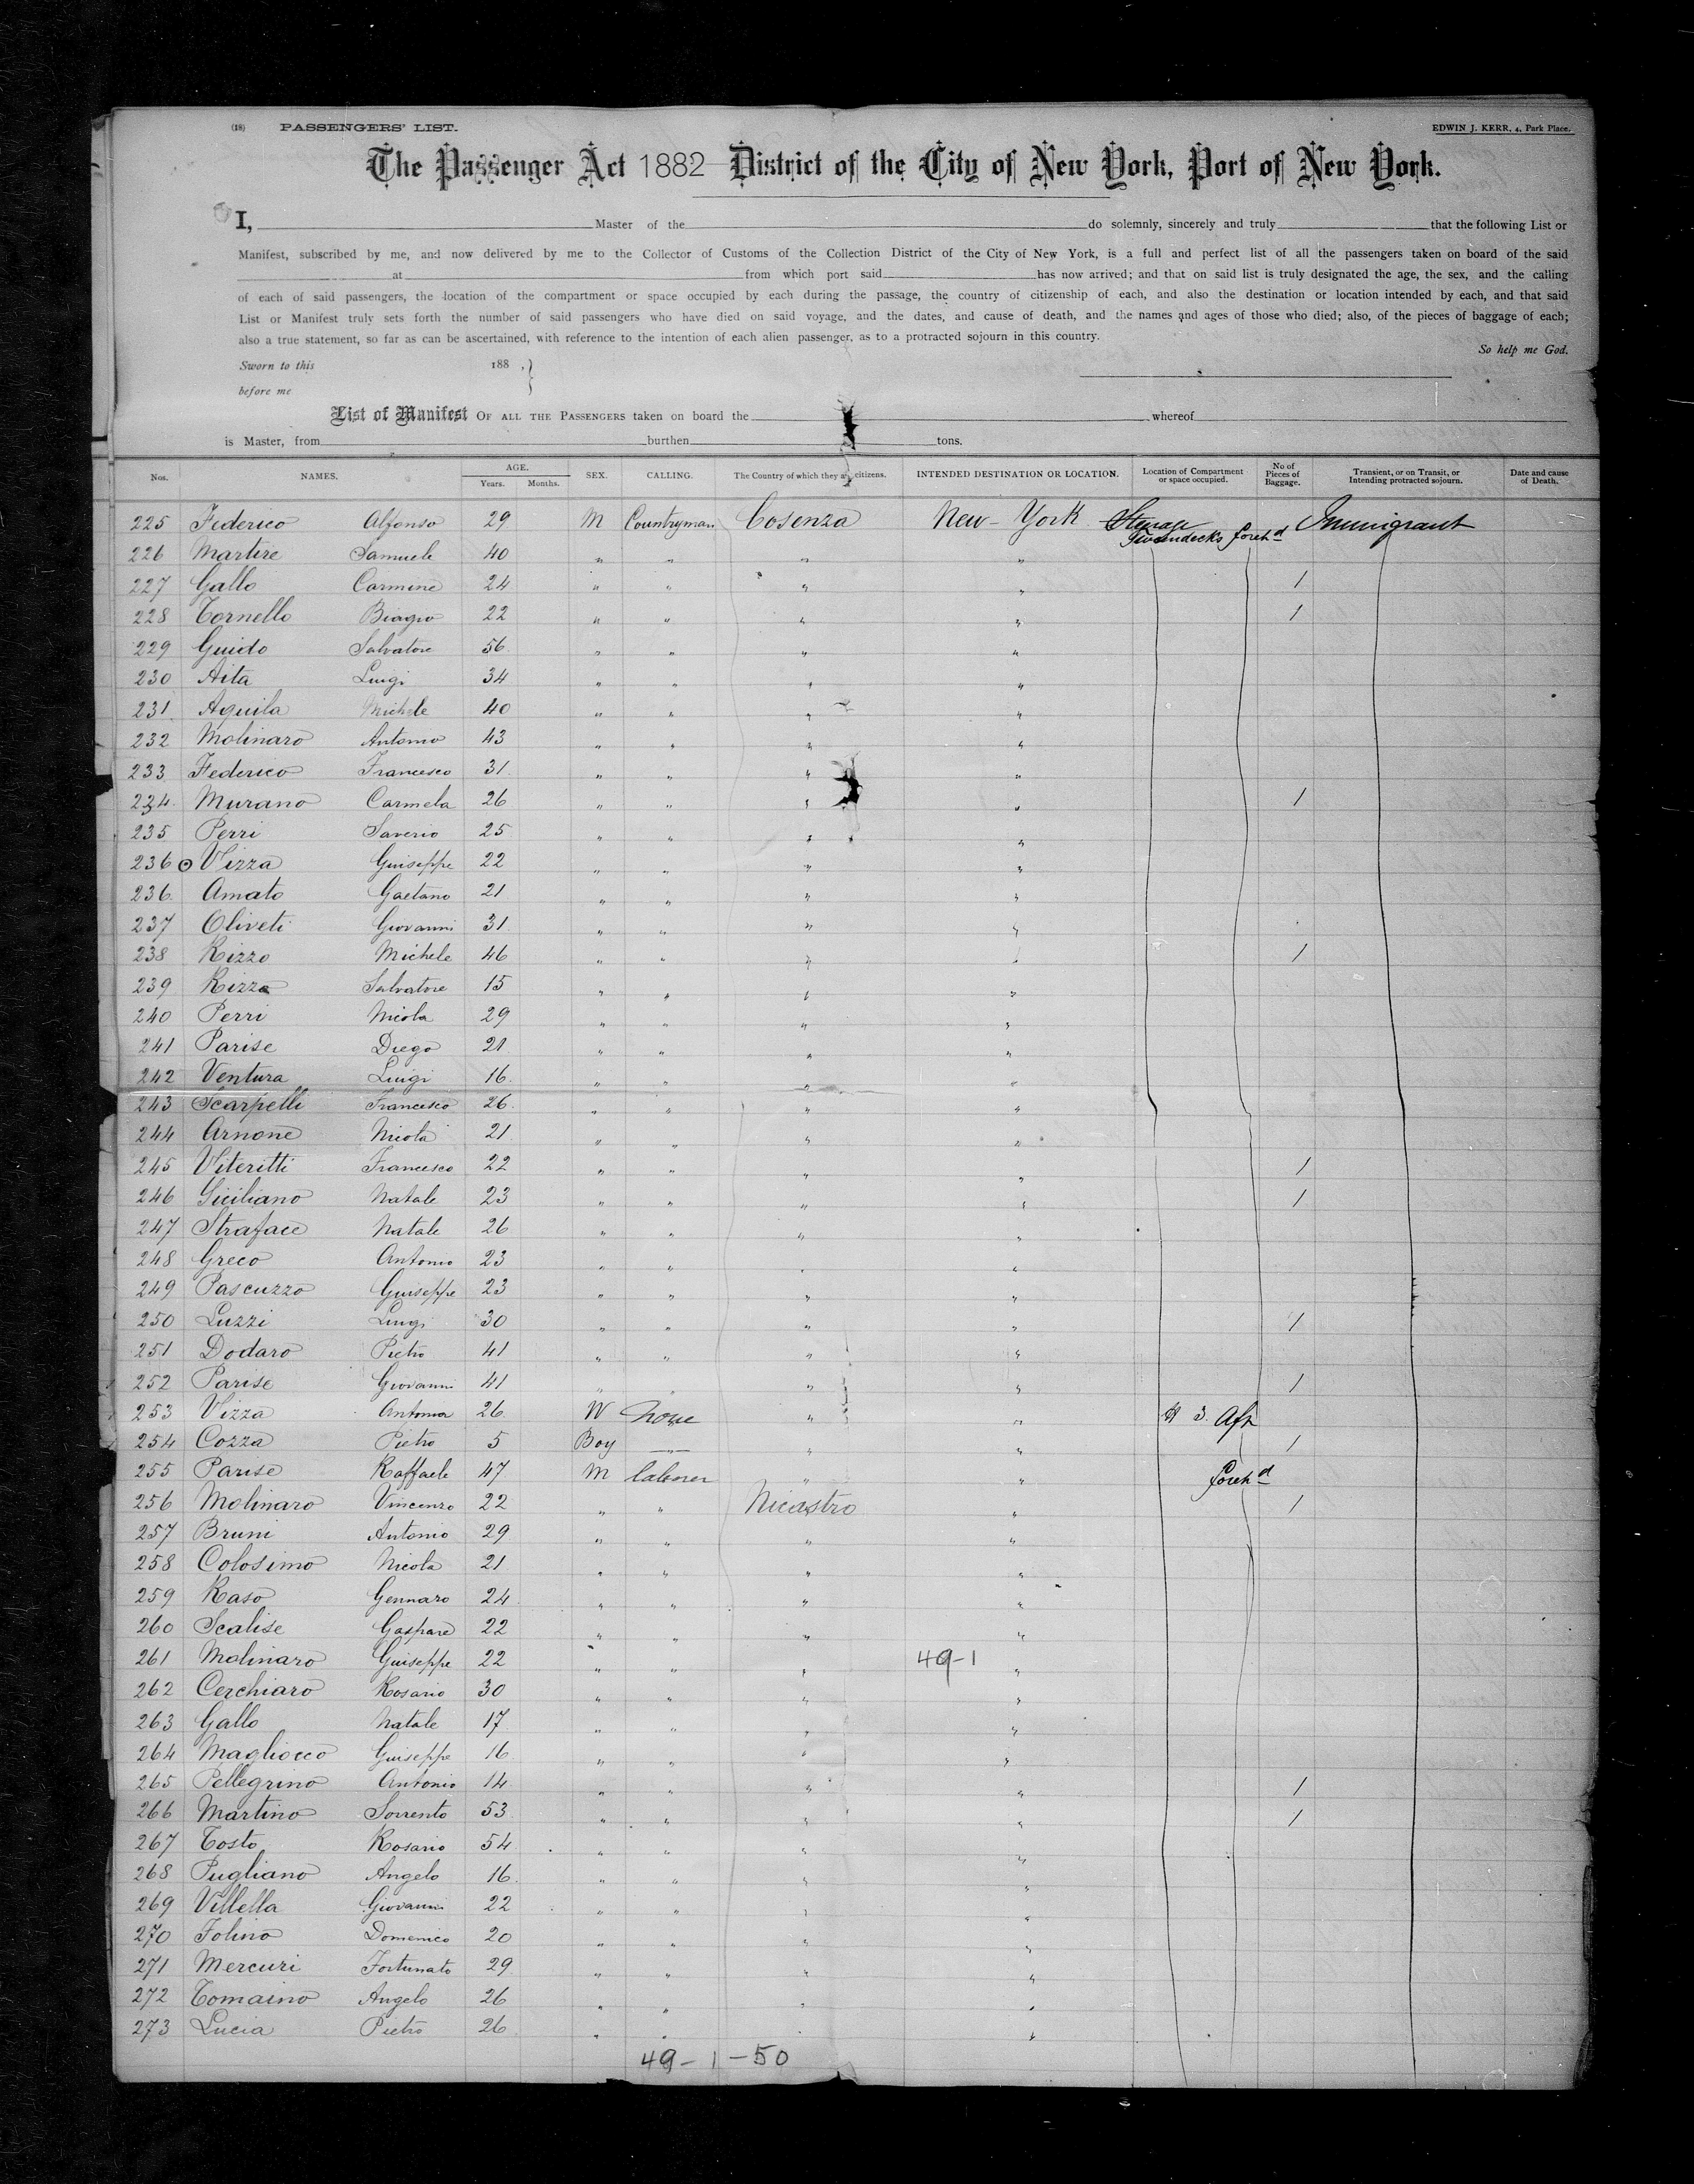 (18) PASSENGERS' LIST. EDWIN J. KERR, 4, Park Place.
The Passenger Act 1882 District of the City of New York, Port of New York.
I, Master of the do solemnly, sincerely and truly that the following List or
Manifest, subscribed by me, and now delivered by me to the Collector of Customs of the Collection District of the City of New York, is a full and perfect list of all the passengers taken on board of the said
at from which port said has now arrived; and that on said list is truly designated the age, the sex, and the calling
of each of said passengers, the location of the compartment or space occupied by each during the passage, the country of citizenship of each, and also the destination or location intended by each, and that said
List or Manifest truly sets forth the number of said passengers who have died on said voyage, and the dates, and cause of death, and the names and ages of those who died; also, of the pieces of baggage of each;
also a true statement, so far as can be ascertained, with reference to the intention of each alien passenger, as to a protracted sojourn in this country.
So help me God.
Sworn to this 188 ,}
before me
List of Manifest OF ALL THE PASSENGERS taken on board the whereof
is Master, from burthen tons.
Nos. NAMES. AGE. Years. Months. SEX. CALLING. The Country of which they are citizens. INTENDED DESTINATION OR LOCATION. Location of Compartment or space occupied. No of Pieces of Baggage. Transient, or on Transit, or Intending protracted sojourn. Date and cause of Death.
225 Federico Alfonso 29 M Countryman Cosenza New-York Steerage Immigrant
Tweendecks foreh d
226 Martire Samuele 40 " " " "
227 Gallo Carmine 24 " " " " 1
228 Tornello Biagio 22 " " " " 1
229 Guido Salvatore 56 " " " "
230 Aita Luigi 34 " " " "
231 Aquila Michele 40 " " " "
232 Molinaro Antonio 43 " " " "
233 Federico Francesco 31 " " " "
234 Murano Carmela 26 " " " " 1
235 Perri Saverio 25 " " " "
236 Vizza Guiseppe 22 " " " "
236 Amato Gaetano 21 " " " "
237 Oliveti Giovanni 31 " " " "
238 Rizzo Michele 46 " " " " 1
239 Rizzo Salvatore 15 " " " "
240 Perri Nicola 29 " " " "
241 Parise Diego 21 " " " "
242 Ventura Luigi 16 " " " "
243 Scarpelli Francesco 26 " " " "
244 Arnone Nicola 21 " " " "
245 Viteritti Francesco 22 " " " " 1
246 Siciliano Natale 23 " " " " 1
247 Straface Natale 26 " " " "
248 Greco Antonio 23 " " " "
249 Pascuzzo Guiseppe 23 " " " "
250 Luzzi Luigi 30 " " " " 1
251 Dodaro Pietro 41 " " " "
252 Parise Giovanni 41 " " " " 1
253 Vizza Antonia 26 W None " " 3 Aft
254 Cozza Pietro 5 Boy " " " 1
255 Parise Raffaele 47 M labourer " " foreh d
256 Molinaro Vincenzo 22 " " Nicastro " 1
257 Bruni Antonio 29 " " " "
258 Colosimo Nicola 21 " " " "
259 Raso Gennaro 24 " " " "
260 Scalise Gaspare 22 " " " "
261 Molinaro Guiseppe 22 " " " 49-1 "
262 Cerchiaro Rosario 30 " " " "
263 Gallo Natale 17 " " " "
264 Magliocco Guiseppe 16 " " " "
265 Pellegrino Antonio 14 " " " " 1
266 Martino Sorrento 53 " " " " 1
267 Tosto Rosario 54 " " " "
268 Pugliano Angelo 16 " " " "
269 Villella Giovanni 22 " " " "
270 Folino Domenico 20 " " " "
271 Mercuri Fortunato 29 " " " "
272 Tomaino Angelo 26 " " " "
273 Lucia Pietro 26 " " " "
49-1-50